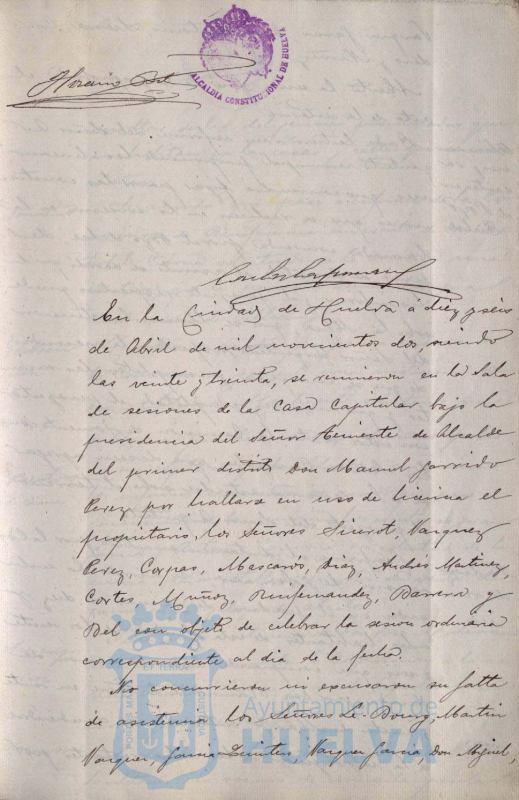 ALCALDIA CONSTITUCIONAL DE HUELVA
Horacio Bel
En la Ciudad de Huelva á diez y seis
de Abril de mil novecientos dos, siendo
las veinte y treinta, se reunieron en la Sala
de sesiones de la Casa Capitular bajo la
presidencia del Señor Teniente de Alcalde
del primer distrito Don Manuel Garrido
Perez por hallarse en uso de licencia el
propietario, los Señores Siurot, Vazquez
Perez, Corpas, Mascarós, Diaz, Andrés Martinez,
Cortes, Muñoz, Ruifernandez, Barrera y
Bel con objeto de celebrar la sesion ordinaria
correspondiente al dia de la fecha.
No concurrieron ni excusaron su falta
de asistencia los Señores Le Bourg, Martin
Vazquez, Garcia Quintero, Vazquez Garcia, Don Miguel,
Ayuntamiento de
HUELVA